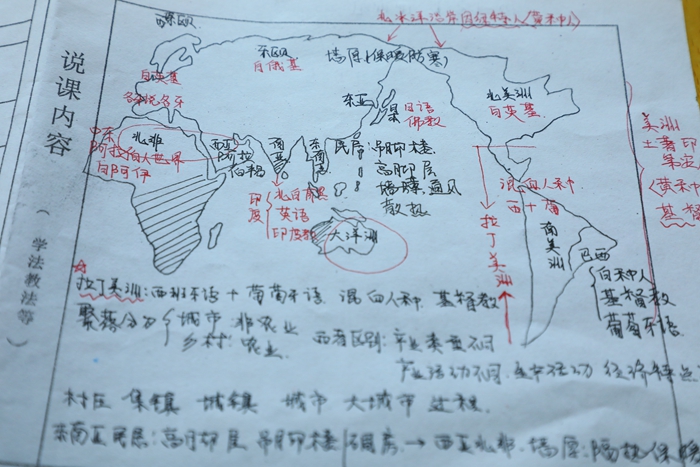 说课内容
（学法教法等）
北冰洋沿岸因纽特人（黄种人）
西欧
白英基
东欧
白俄基
墙厚（保暖防寒）
北美洲
白英基
东亚
日语
佛教
中东
阿拉伯大世界
白阿伊
北非
西亚
阿拉
伯
南亚
东南亚
印度
英语
印度教
民居
吊脚楼
高脚屋
通风
散热
大洋洲
拉丁美洲
混血人种
西+葡
南美洲
巴西
白种人
基督教
葡萄牙语
美洲
土著印
黄种
基督
拉丁美洲：西班牙语+葡萄牙语 混血人种 基督教
聚落分为 城市：非农业
乡村：农业
两者区别：产业类型不同
产业活动不同
村庄 集镇 城镇 城市 大城市 过程
东南亚民居：高脚屋 吊脚楼
墙厚：隔热保